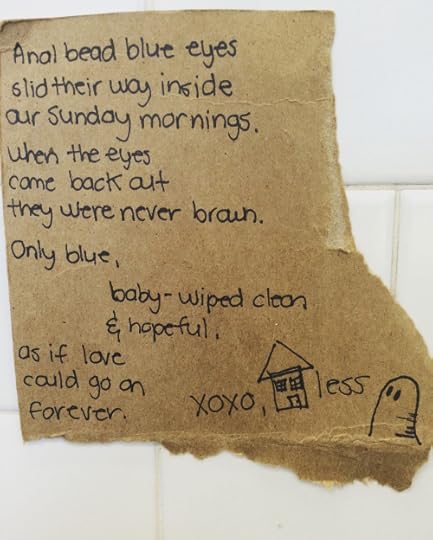 Anal bead blue eyes
slid their way inside
our Sunday mornings.
when the eyes
came back out
they were never brown.
Only blue,
baby-wiped clean
& hopeful,
as if love
could go on
forever.
xoxo, less